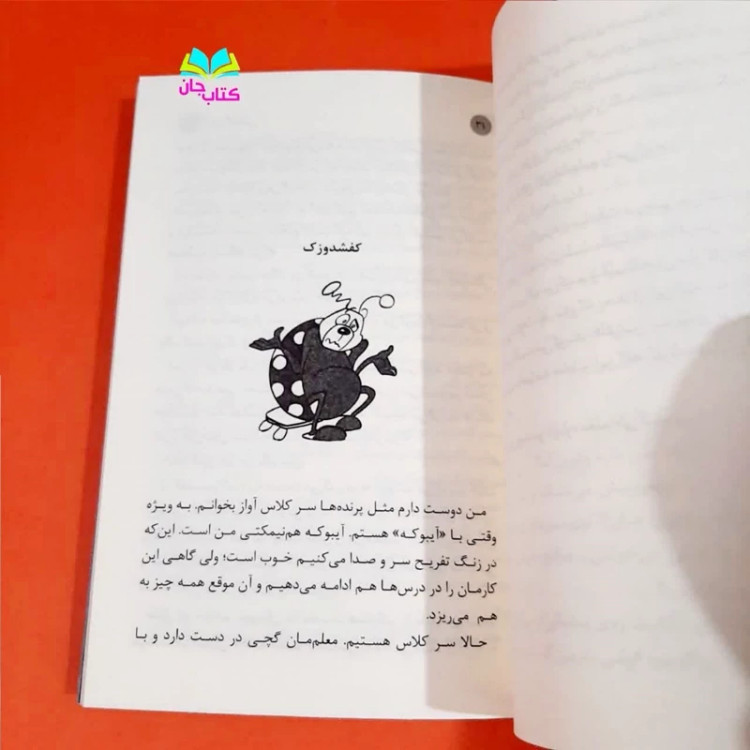 کتاب جان
۳۱
کفشدوزک
من دوست دارم مثل پرنده‌ها سر کلاس آواز بخوانم. به ویژه
وقتی با «آیبوکه» هستم. آیبوکه هم‌نیمکتی من است. این‌که
در زنگ تفریح سر و صدا می‌کنیم خوب است؛ ولی گاهی این
کارمان را در درس‌ها هم ادامه می‌دهیم و آن موقع همه چیز به
هم می‌ریزد.
حالا سر کلاس هستیم. معلم‌مان گچی در دست دارد و با